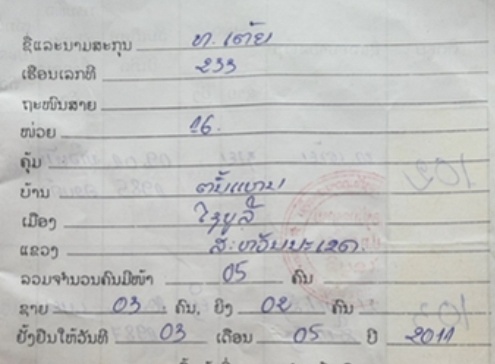 ຊື່ແລະນາມສະກຸນ ທ. ເຕ້ຍ
ເຮືອນເລກທີ 233
ຖະໜົນສາຍ
ໜ່ວຍ 16
ຄຸ້ມ
ບ້ານ
ເມືອງ ໄຊບູລີ
ແຂວງ ສະຫວັນນະເຂດ
ລວມຈຳນວນຄົນມີໜ້າ 05 ຄົນ
ຊາຍ 03 ຄົນ, ຍິງ 02 ຄົນ
ຢັ້ງຢືນໃຫ້ວັນທີ 03 ເດືອນ 05 ປີ 2011